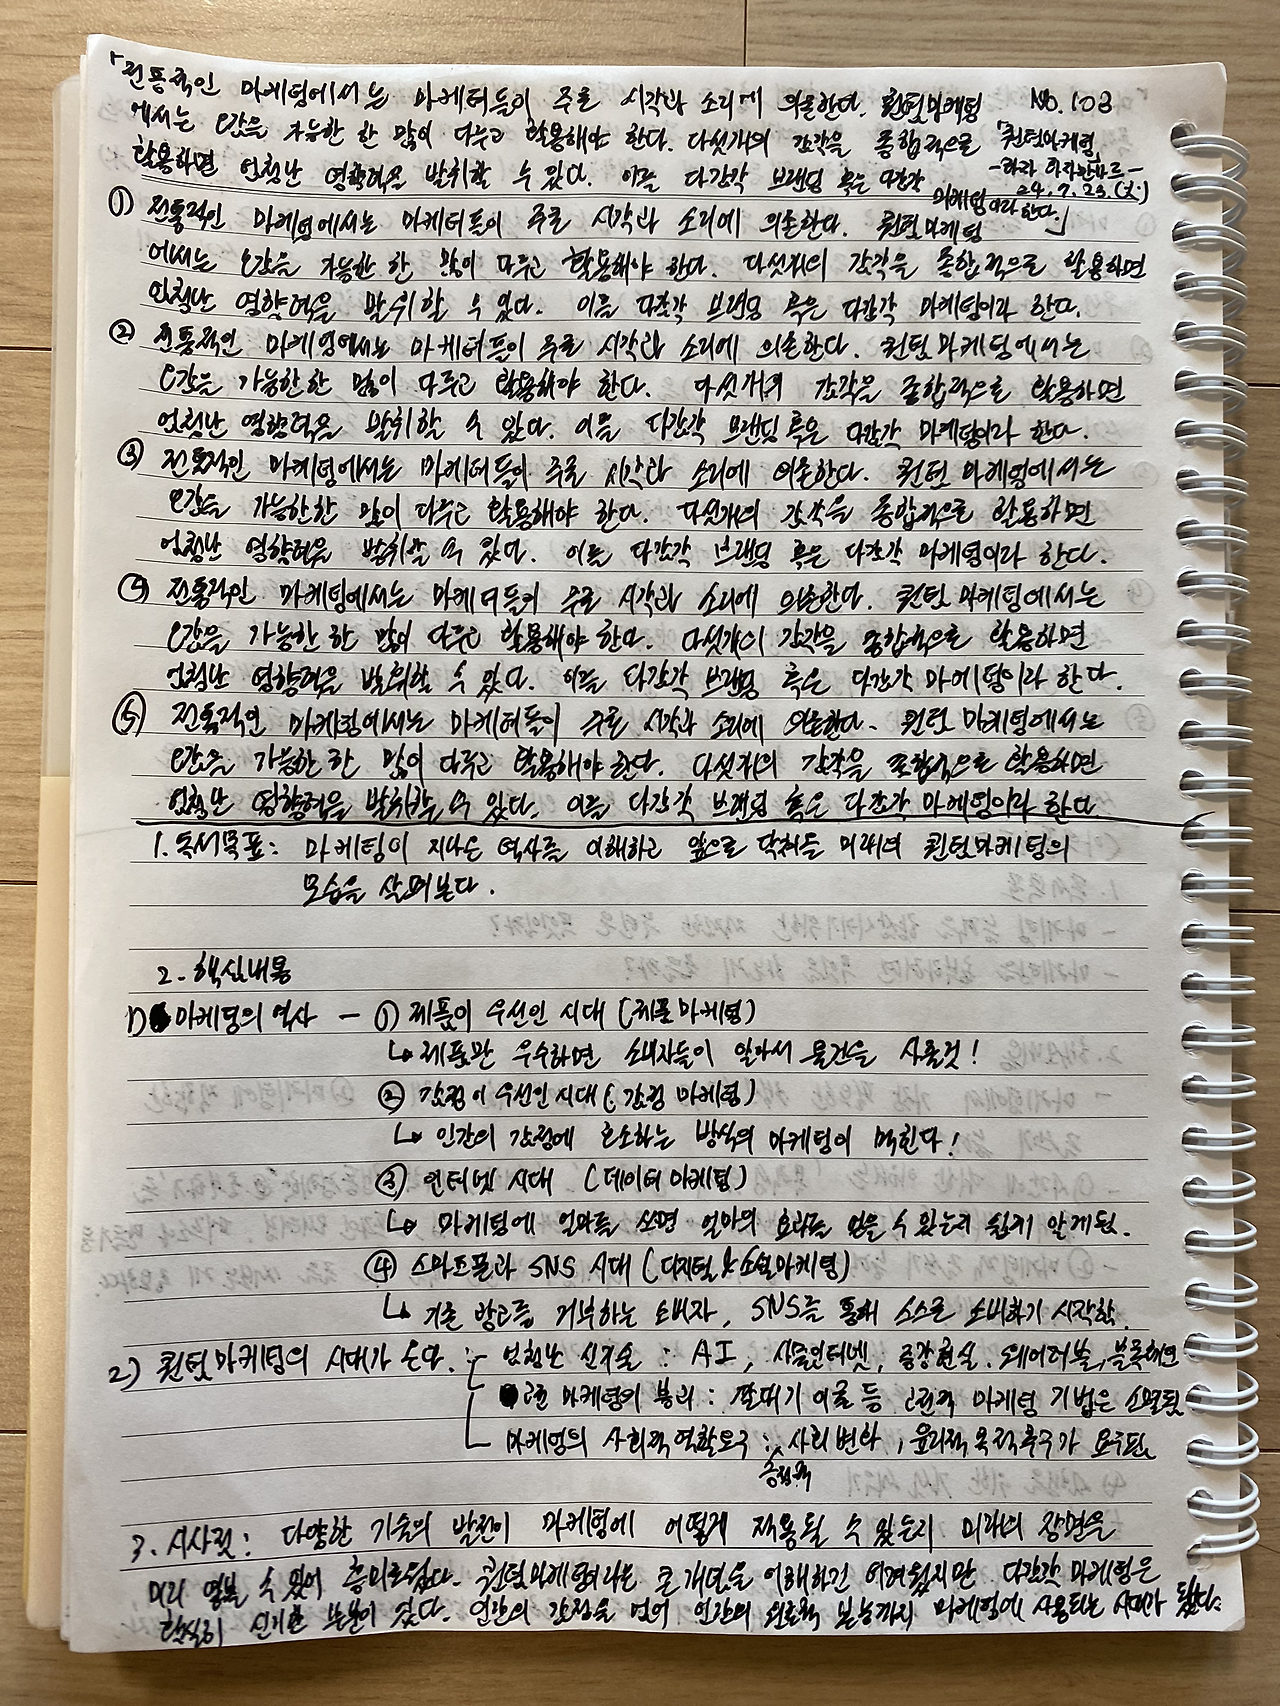 「전통적인 마케팅에서는 마케터들이 주로 시각과 소리에 의존한다. 퀀텀마케팅 No.103
에서는 오감을 가능한 한 많이 다루고 활용해야 한다. 다섯개의 감각을 종합적으로 「퀀텀마케팅」
활용하면 엄청난 영향력을 발휘할 수 있다. 이를 다감각 브랜딩 혹은 다감각 -라자 라자만나르-
마케팅이라 한다.」 24.7.23.(화)
① 전통적인 마케팅에서는 마케터들이 주로 시각과 소리에 의존한다. 퀀텀마케팅
에서는 오감을 가능한 한 많이 다루고 활용해야 한다. 다섯개의 감각을 종합적으로 활용하면
엄청난 영향력을 발휘할 수 있다. 이를 다감각 브랜딩 혹은 다감각 마케팅이라 한다.
② 전통적인 마케팅에서는 마케터들이 주로 시각과 소리에 의존한다. 퀀텀 마케팅에서는
오감을 가능한 한 많이 다루고 활용해야 한다. 다섯개의 감각을 종합적으로 활용하면
엄청난 영향력을 발휘할 수 있다. 이를 다감각 브랜딩 혹은 다감각 마케팅이라 한다.
③ 전통적인 마케팅에서는 마케터들이 주로 시각과 소리에 의존한다. 퀀텀 마케팅에서는
오감을 가능한한 많이 다루고 활용해야 한다. 다섯개의 감각을 종합적으로 활용하면
엄청난 영향력을 발휘할 수 있다. 이를 다감각 브랜딩 혹은 다감각 마케팅이라 한다.
④ 전통적인 마케팅에서는 마케터들이 주로 시각과 소리에 의존한다. 퀀텀 마케팅에서는
오감을 가능한 한 많이 다루고 활용해야 한다. 다섯개의 감각을 종합적으로 활용하면
엄청난 영향력을 발휘할 수 있다. 이를 다감각 브랜딩 혹은 다감각 마케팅이라 한다.
⑤ 전통적인 마케팅에서는 마케터들이 주로 시각과 소리에 의존한다. 퀀텀 마케팅에서는
오감을 가능한 한 많이 다루고 활용해야 한다. 다섯개의 감각을 종합적으로 활용하면
엄청난 영향력을 발휘할 수 있다. 이를 다감각 브랜딩 혹은 다감각 마케팅이라 한다.
1. 독서목표: 마케팅이 지나온 역사를 이해하고 앞으로 닥쳐올 미래의 퀀텀마케팅의
모습을 살펴본다.
2. 핵심내용
1) 마케팅의 역사 - ① 제품이 우선인 시대 (제품 마케팅)
↳ 제품만 우수하면 소비자들이 알아서 물건을 사올것!
② 감정이 우선인 시대 (감정 마케팅)
↳ 인간의 감정에 호소하는 방식의 마케팅이 먹힌다!
③ 인터넷 시대 (데이터 마케팅)
↳ 마케팅에 얼마를 쓰면 얼마의 효과를 얻을 수 있는지 쉽게 알게됨.
④ 스마트폰과 SNS 시대 (디지털 & 소셜마케팅)
↳ 기존 광고를 거부하는 소비자, SNS를 통해 스스로 소비하기 시작함.
2) 퀀텀마케팅의 시대가 온다. - 엄청난 신기술 : AI, 사물인터넷, 증강현실, 웨어러블, 블록체인
고전 마케팅의 붕괴 : 깔때기 이론 등 고전적 마케팅 기법은 소멸됨
마케팅의 사회적 역할도구 : 긍정적 사회변화, 윤리적 목적추구가 요구됨.
3. 시사점: 다양한 기술의 발전이 마케팅에 어떻게 적용될 수 있는지 미래의 장면을
미리 엿볼 수 있어 흥미로웠다. 퀀텀마케팅이라는 큰개념을 이해하긴 어려웠지만 다감각 마케팅은
확실히 신기한 부분이 있다. 인간의 감정을 넘어 인간의 본능까지 마케팅에 사용되는 시대가 됐다.